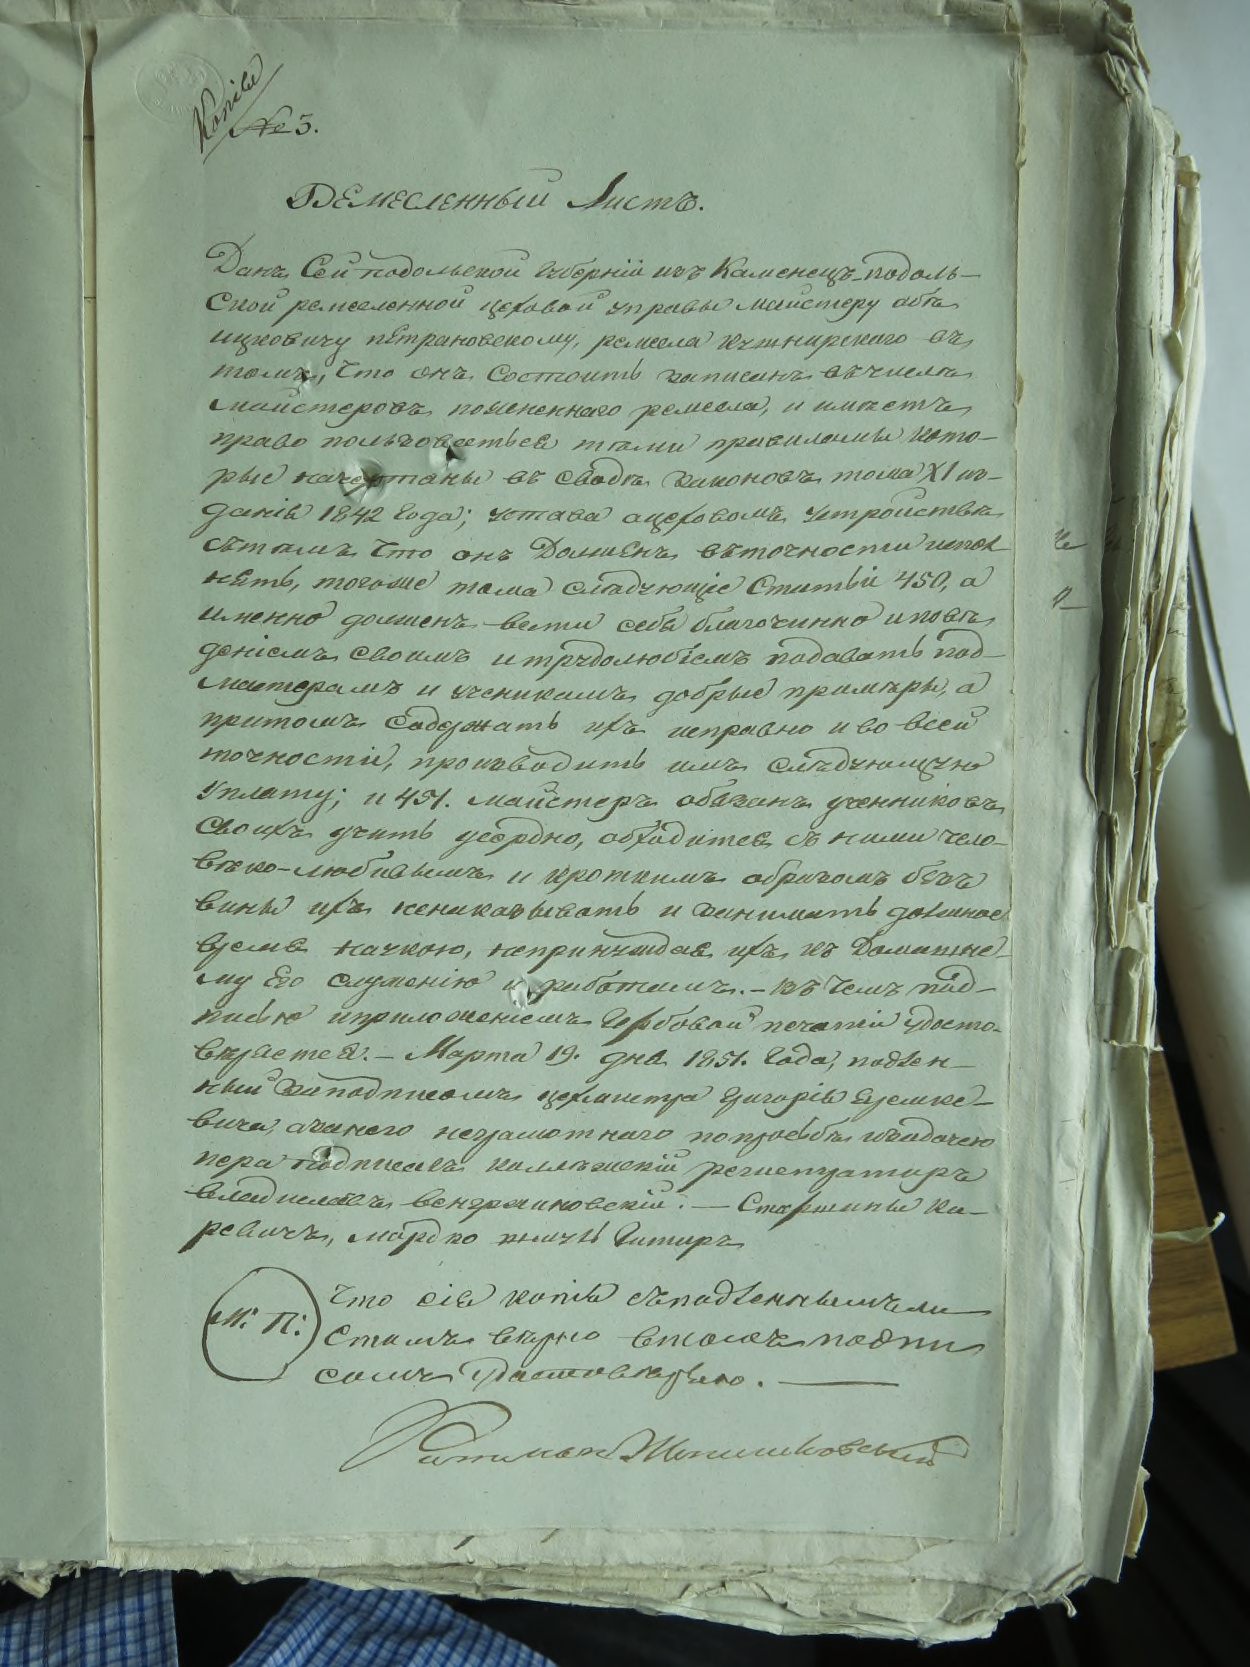 Копія
№ 3.
Ремесленный Листъ.
Данъ Сей подольской Губерніи изъ Каменецъ-подоль-
ской ремесленной цеховой управы майстеру
ицковичу петрановскому, ремесла кушнирскаго въ
томъ, Что онъ Состоитъ записанъ вчислѣ
майстеровъ помененнаго ремесла, и имѣетъ
право пользоватьса тѣми правилами кото-
рые начертаны въ Сводѣ законовъ тома XI из-
данія 1842 Года; устава оцеховомъ устройствѣ
сътѣмъ Что онъ Долженъ въточности испол
нять, тогоже тома слѣдующіе Статьи 450, а
именно долженъ вести себя благочинно и повѣ
деніемъ своимъ итрудолюбіемъ подавать под-
мастерамъ и ученикамъ добрые примѣры, а
притомъ Содержать ихъ исправно и во всей
точности, производить имъ слѣдующую
уплату; и 451. майстеръ обязанъ учениковъ
Своихъ учить усердно, обходится съ ними чело-
вѣко-любивымъ и кроткимъ образомъ безъ
вины ихъ ненаказывать и занимать должное
время наукою, непринуждая ихъ къ Домашне-
му Его служенію и работамъ. — въ Чемъ под-
писью иприложеніемъ Гербовой печати удосто-
вѣряется. — Марта 19. дня 1851. Года, подлен-
ный заподписомъ цехмистра Григорія
вича, азанего неграмотнаго попрозьбѣ издачею
пера подписалъ коллежскій регистраторъ
владиславъ венгржиновскій. — Старшины Ка-
ревичъ, мордко
М: П:
Что сія копія съподленнымъ ли
стомъ вѣрно втомъ подпи
сомъ удостовѣряю. —